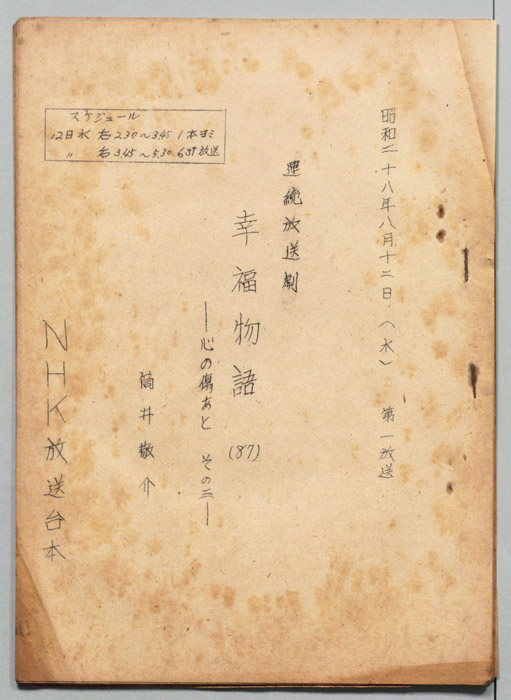 昭和二十八年八月十二日（水）　第一放送
連続放送劇
幸福物語　(87)
―心の傷あと　その三―
筒井敬介
スケジュール
12日水 右 2.30～3.45 1 本ヨミ
〃 右 3.45～5.30 6st 放送
NHK放送台本